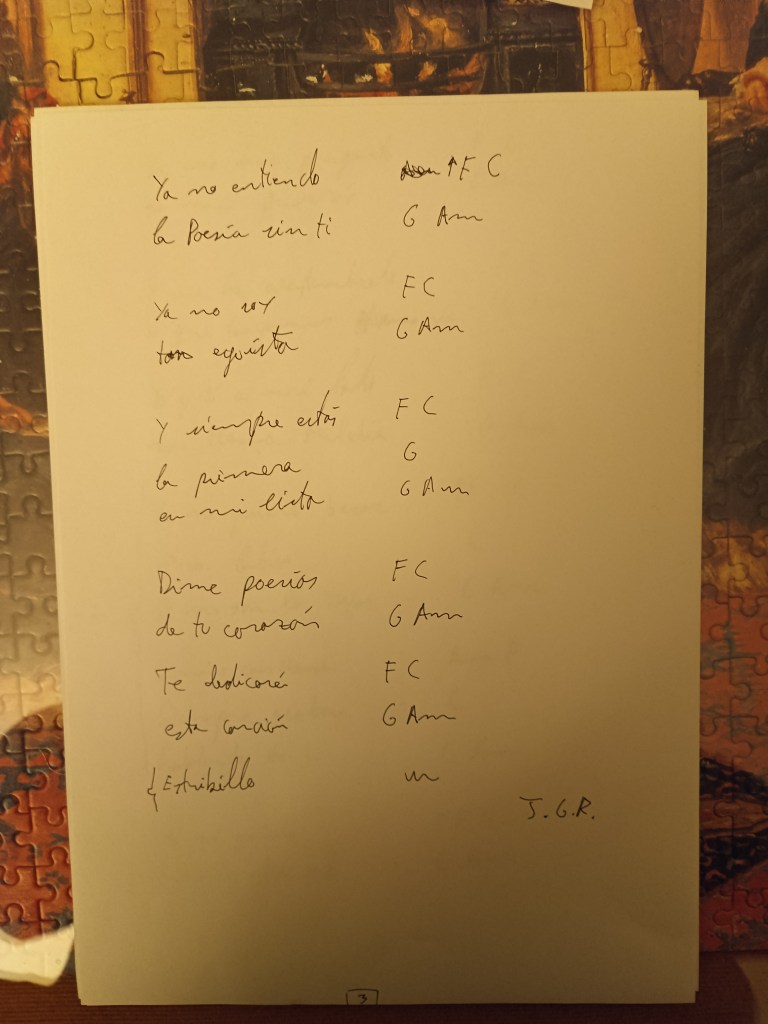 Ya no entiendo ↑ F C
la Poesía sin ti G Am
Ya no soy F C
tan egoísta G Am
Y siempre estás F C
la primera G
en mi lista G Am
Dime poesías F C
de tu corazón G Am
Te dedicaré F C
esta canción G Am
{ Estribillo
J. G. R.
3